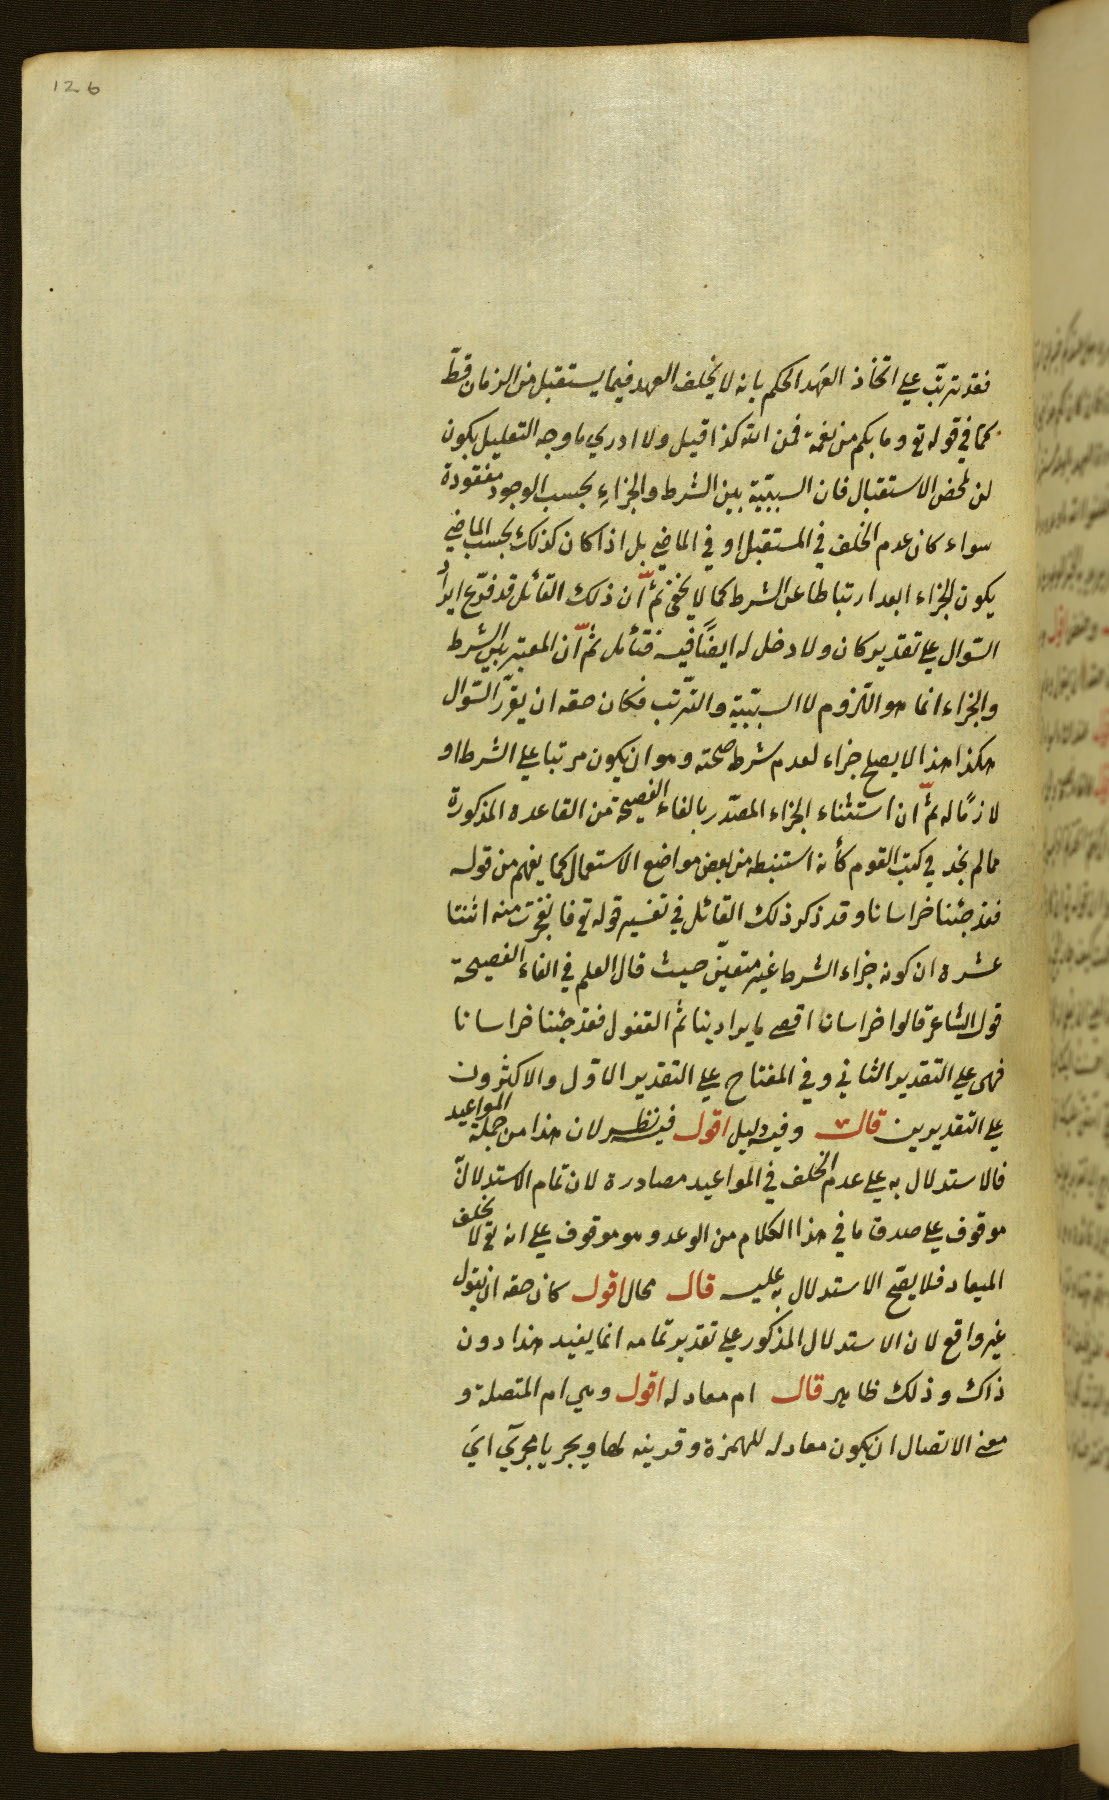 126
فقد ترتب على اتخاذ العهد الحكم بانه لا يخلف العهد فيما يستقبل من الزمان قطّ
كما في قوله تع وما بكم من نعمة فمن الله كذا قيل ولا ادري ما وجه التعليل بكون
لن لمحض الاستقبال فان السببيّة بين الشرط والجزاء بحسب الوجود مفقودة
سواء كان عدم الخلف في المستقبل او في الماضي بل اذا كان كذلك بحسب الماضي
يكون الجزاء ابعد ارتباطا عن الشرط كما لا يخفى ثمّ ان ذلك القائل قد فرّع ايراد
السّوال على تقدير كان ولا دخل له ايضًا فيه فتأمل ثمّ ان المعتبر بين الشرط
والجزاء انما هو اللّزوم لا السببيّة والترّتب فكان حقه ان يقرّر السّوال
هكذا هذا لا يصلح جزاء لعدم شرط صحته وهو ان يكون مرتبا على الشرط او
لازمًا له ثمّ ان استثناء الجزاء المصدّر بالفاء الفصيحة من القاعده المذكورة
مما لم نجد في كتب القوم كأنه استنبطه من بعض مواضع الاستعمال كما يفهم من قوله
فقد جئنا خراسانا وقد ذكر ذلك القائل في تفسير قوله تع فانفجرت منه اثنتا
عشره ان كونه جزاء الشرط غير متعيّن حيث قال العلم في الفاء الفصيحة
قول الشاعر قالوا خراسان اقصى ما يراد بنا ثمّ القفول فقد جئنا خراسانا
فهى على التقدير الثاني وفي المفتاح على التقدير الاوّل والاكثرون
على التقديرين قال وفيه دليل اقول فيه نظر لان هذا من جملة المواعيد
فالاستدلال به على عدم الخلف في المواعيد مصادرة لان تمام الاستدلال
موقوف على صدق ما في هذا الكلام من الوعد وهو موقوف على انه تع لا يخلف
الميعاد فلا يصح الاستدلال به عليه قال محال اقول كان حقه ان يقول
غير واقع لان الاستدلال المذكور على تقدير تمامه انما يفيد هذا دون
ذاك وذلك ظاهر قال ام معادله اقول وهى ام المتصلة و
معنى الاتصال ان يكون معادله للهمزة وقرينه لها ويجريا مجرى اىّ